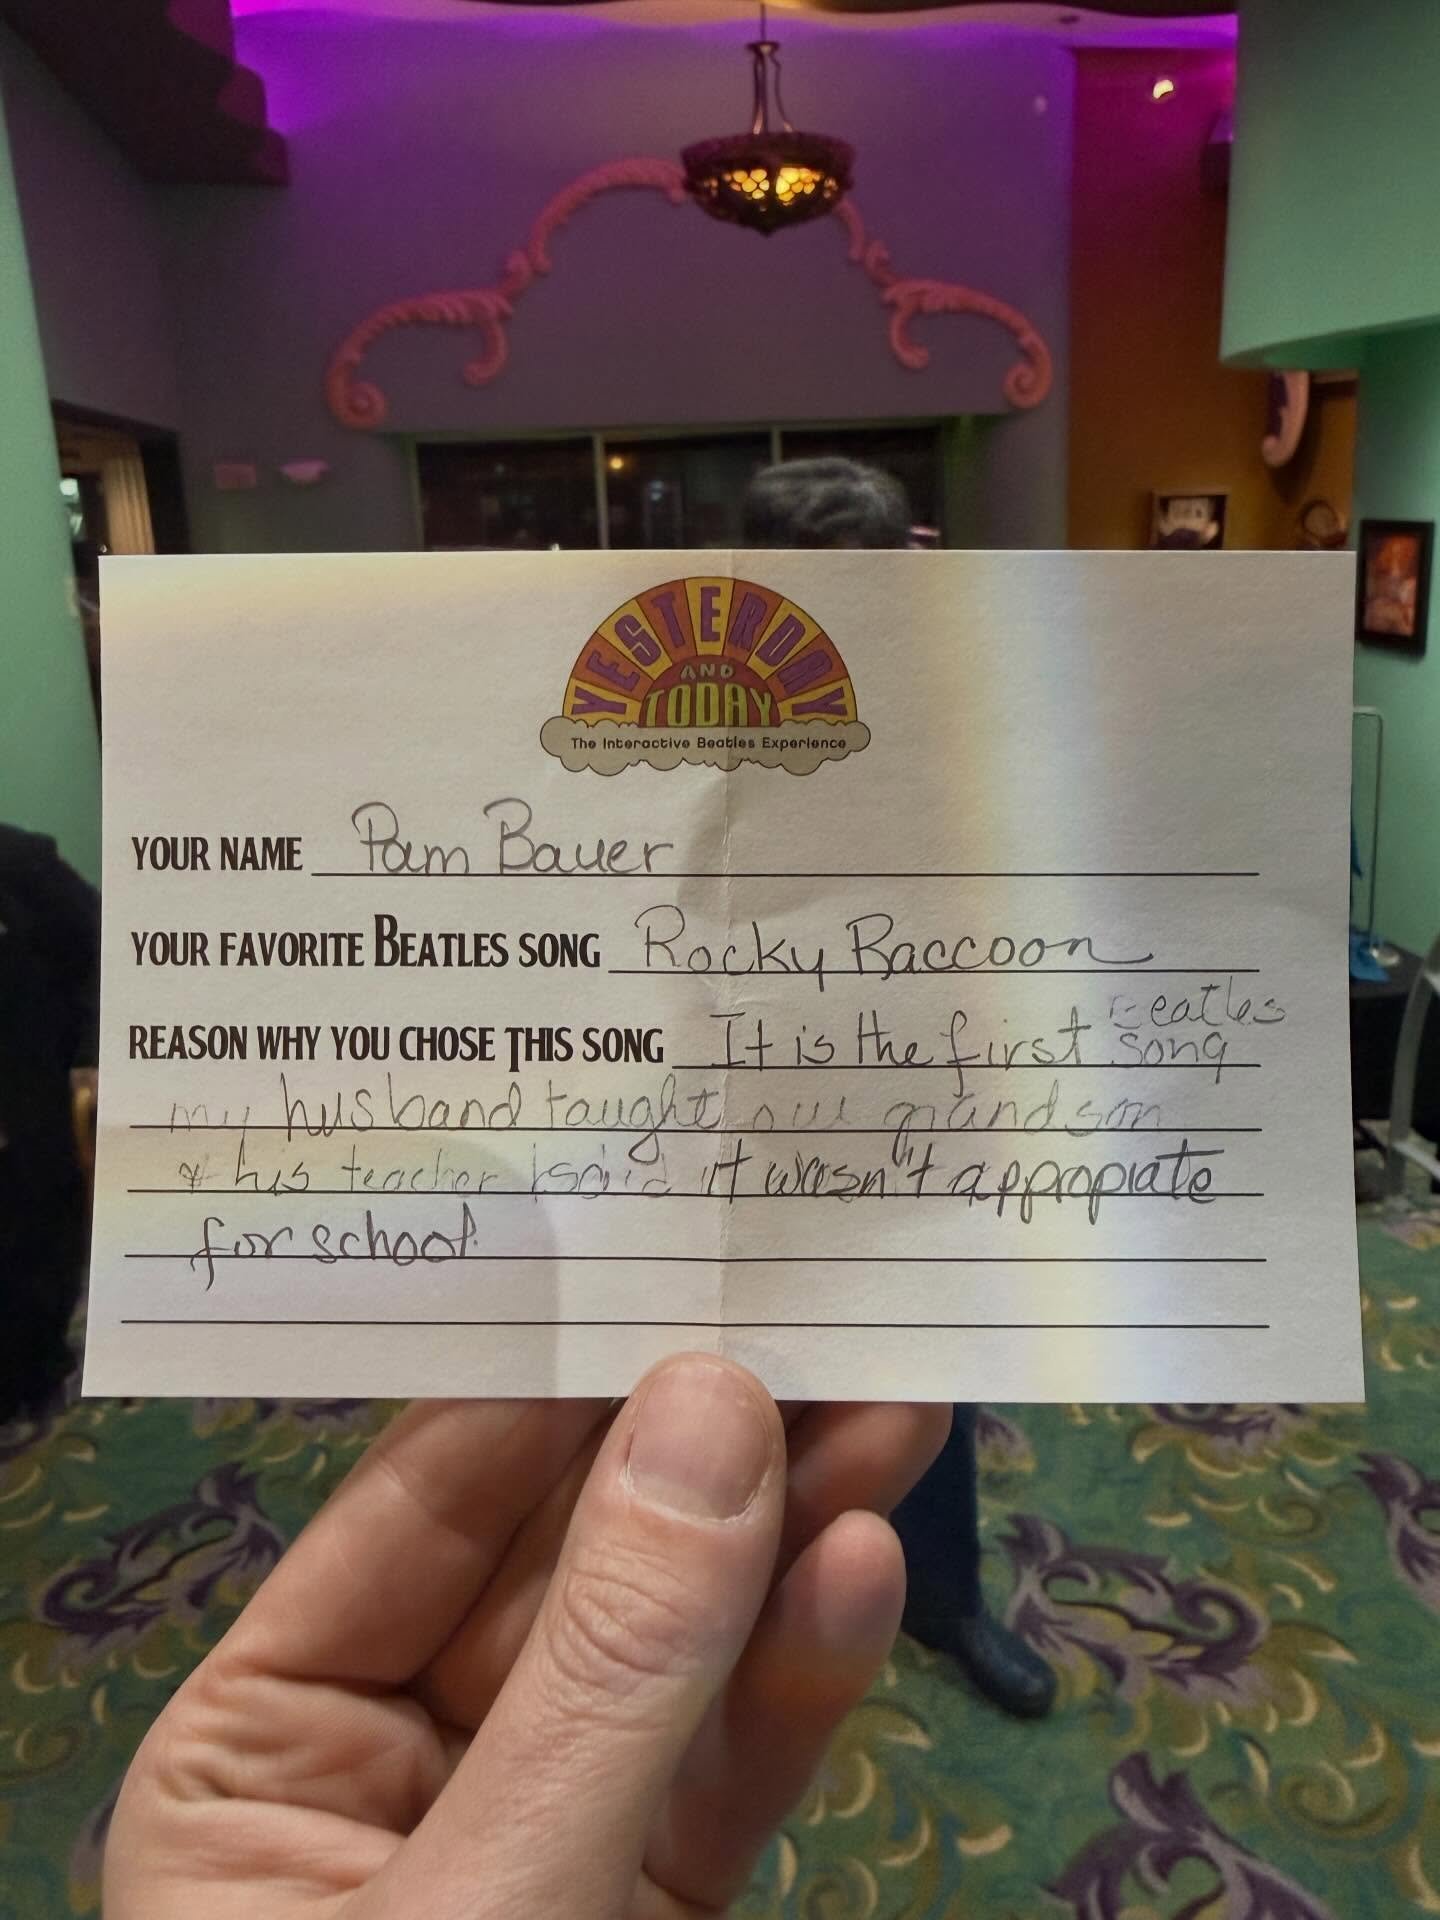 YESTERDAY
AND
TODAY
The Interactive Beatles Experience
YOUR NAME Pam Bauer
YOUR FAVORITE BEATLES SONG Rocky Raccoon
Beatles
REASON WHY YOU CHOSE THIS SONG It is the first song
my husband taught our grandson
& his teacher said it wasn't appropiate
for school.